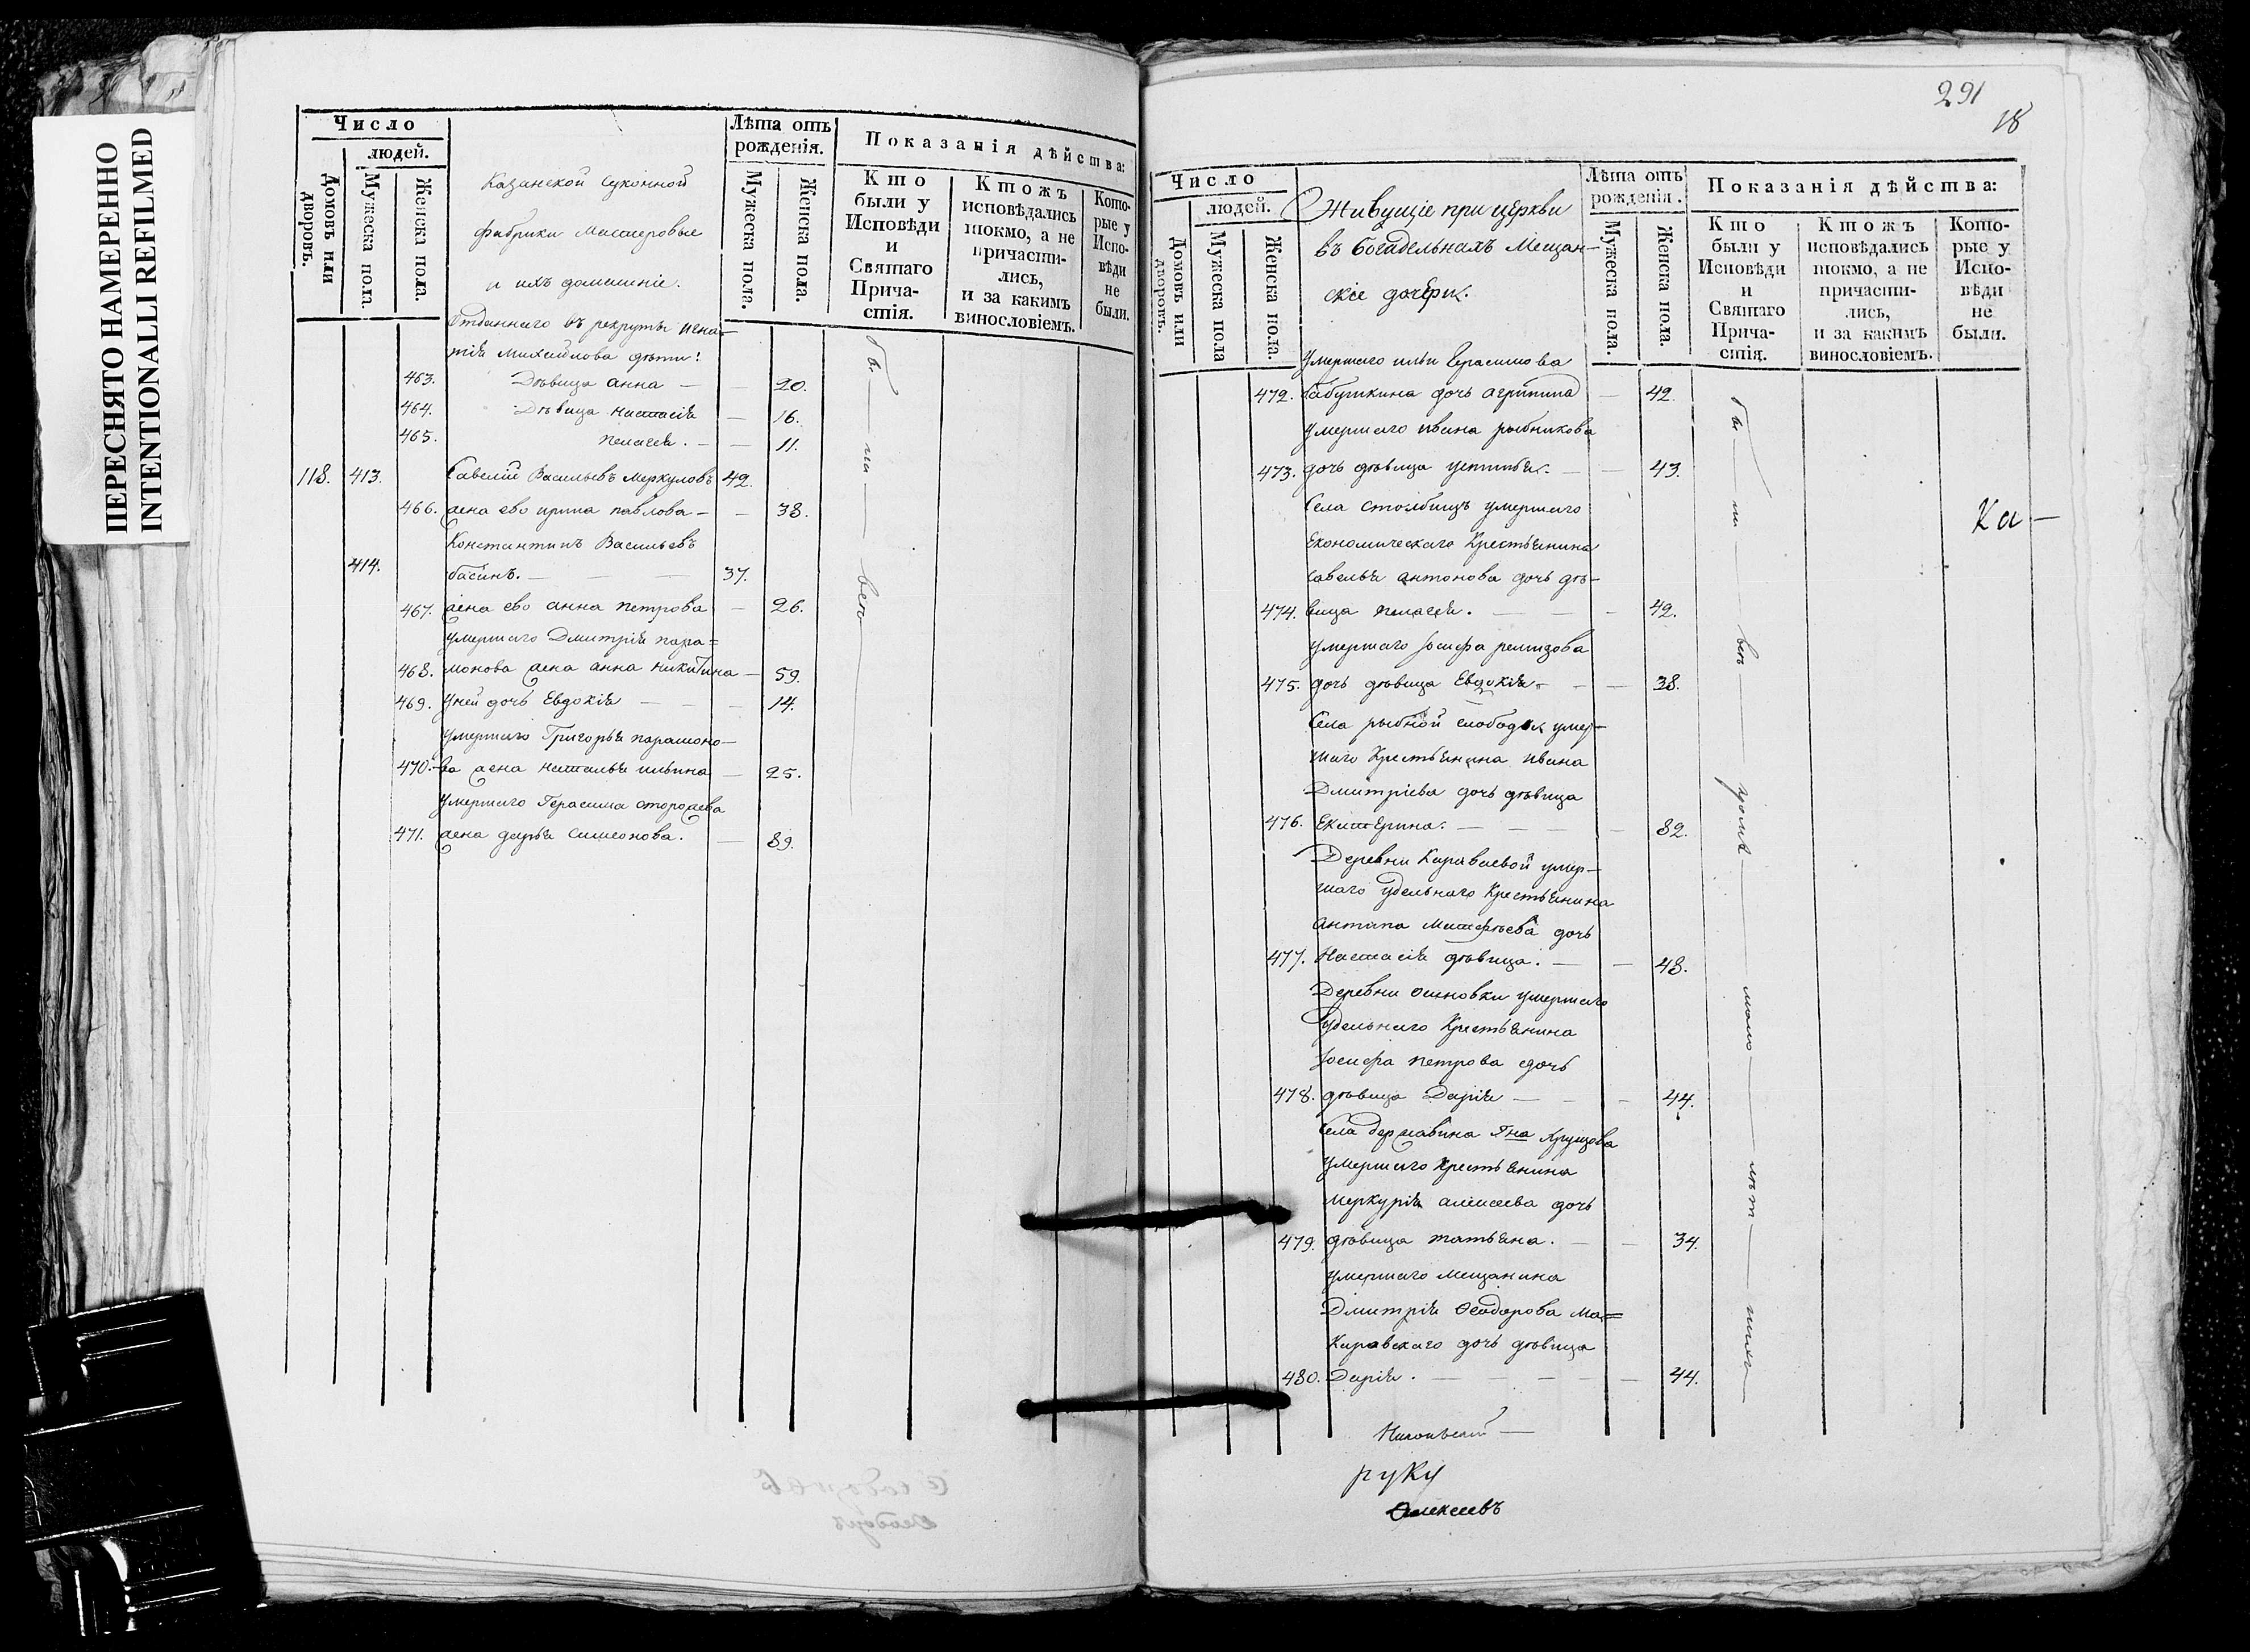 ПЕРЕСНЯТО НАМЕРЕННО
INTENTIONALLI REFILMED
Число
людей.
Домовъ или дворовъ.
Мужеска пола.
Женска пола.
Казанской Суконной
фабрики Мастеровые
и ихъ домашнiе.
Лѣта отъ рожденiя.
Мужеска пола.
Женска пола.
Показанiя дѣйства:
Кто были у Исповѣди и Святаго Причастiя.
Ктожъ исповѣдались токмо, а не причастились, и за какимъ винословiемъ.
Которые у Исповѣди не были.
Отданнаго въ рекруты Игна-
тiя Михайлова дѣти:
463. Дѣвица Анна — — 20.
464. Дѣвица Настасiя — 16.
465. Пелагея. — — 11.
118. 413. Савелiй Васильевъ Меркуловъ 42.
466. жена ево Ирина Павлова — — 38.
Константинъ Васильевъ
414. басинъ. — — — 37.
467. жена ево Анна Петрова — 26.
Умершаго Дмитрiя пара=
468. монова жена Анна Никитина — 59.
469. Уней дочь Евдокiя — — — 14.
Умершаго Григорья парамоно-
470. ва жена Наталья Ильина — 25.
Умершаго Герасима сторожева
471. жена дарья Симеонова. — 89.
бы — ли — всѣ
291
18
Число
людей.
Домовъ или дворовъ.
Мужеска пола
Женска пола.
Живущiе при церкви
въ богадельнахъ Мещан-
скiе дочери.
Лѣта отъ рожденiя.
Мужеска пола.
Женска пола.
Показанiя дѣйства:
Кто были у Исповѣди и Святаго Причастiя.
Ктожъ исповѣдались токмо, а не причастились, и за какимъ винословiемъ.
Которые у Исповѣди не были.
Умершаго ильи Герасимова
472. бабушкина дочь Агрипина — 42.
Умершаго Ивана рыбникова
473. дочь дѣвица Устинья. — — 43.
Села столбищъ умершаго
Економическаго Крестьянина
савелья антонова дочь дѣ-
474. вица Пелагея. — — — 42.
Умершаго Iосифа ремизова
475. дочь дѣвица Евдокiя. — — 38.
Села рыбной слободы умер-
шаго Крестьянина Ивана
Дмитрiева дочь дѣвица
476. Екатерина. — — — — 32.
Деревни Караваевой умер-
шаго удельнаго Крестьянина
Антипа Матфѣева дочь
477. Настасiя дѣвица. — — 48.
Деревни Осиновки умершаго
Удельнаго Крестьянина
Iосифа Петрова дочь
478. дѣвица Дарiя — — — 44.
Села державина Гна
Умершаго Крестьянина
Меркурiя алексеева дочь
479. дѣвица татьяна. — — 34.
Умершаго Мещанина
Дмитрiя Феодорова Ма=
Каравскаго дочь дѣвица
480. Дарiя. — — — — — 44.
бы — ли — всѣ — кромѣ — мало — лѣт — ныхъ
Ка —
руку
Алексеевъ